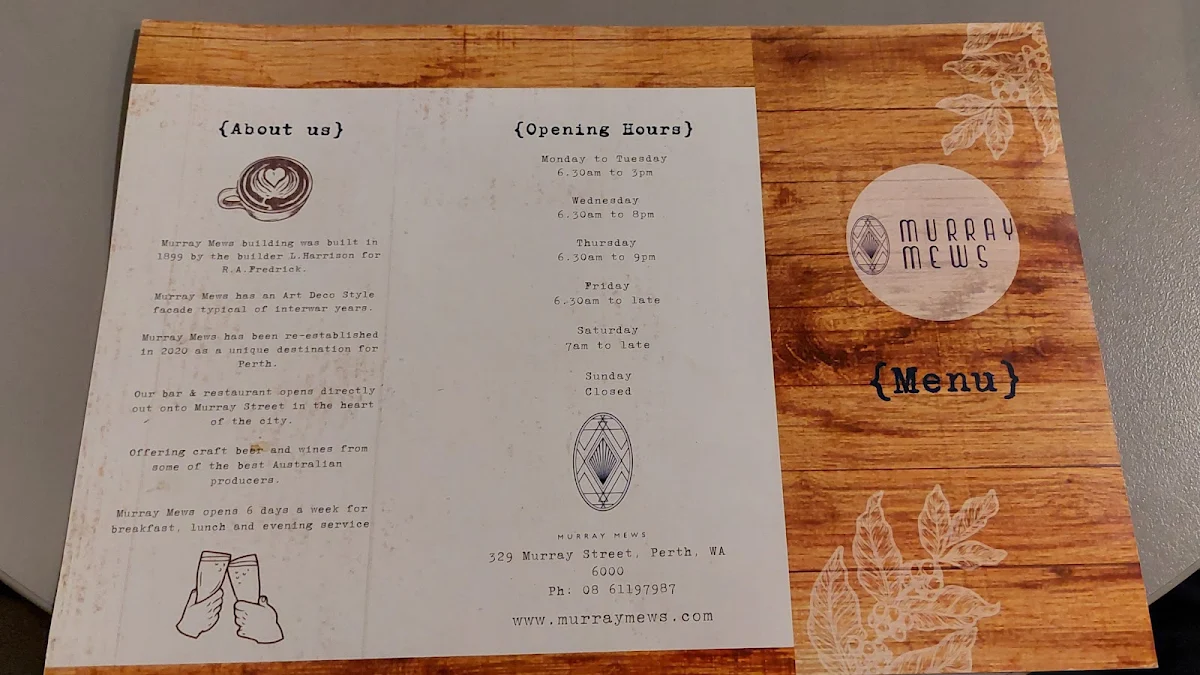 {About us}
Murray Mews building was built in
1899 by the builder L.Harrison for
R.A.Fredrick.
Murray Mews has an Art Deco Style
facade typical of interwar years.
Murray Mews has been re-established
in 2020 as a unique destination for
Perth.
Our bar & restaurant opens directly
out onto Murray Street in the heart
of the city.
Offering craft beer and wines from
some of the best Australian
producers.
Murray Mews opens 6 days a week for
breakfast, lunch and evening service
{Opening Hours}
Monday to Tuesday
6.30am to 3pm
Wednesday
6.30am to 8pm
Thursday
6.30am to 9pm
Friday
6.30am to late
Saturday
7am to late
Sunday
Closed
MURRAY MEWS
329 Murray Street, Perth, WA
6000
Ph: 08 61197987
www.murraymews.com
MURRAY
MEWS
{Menu}